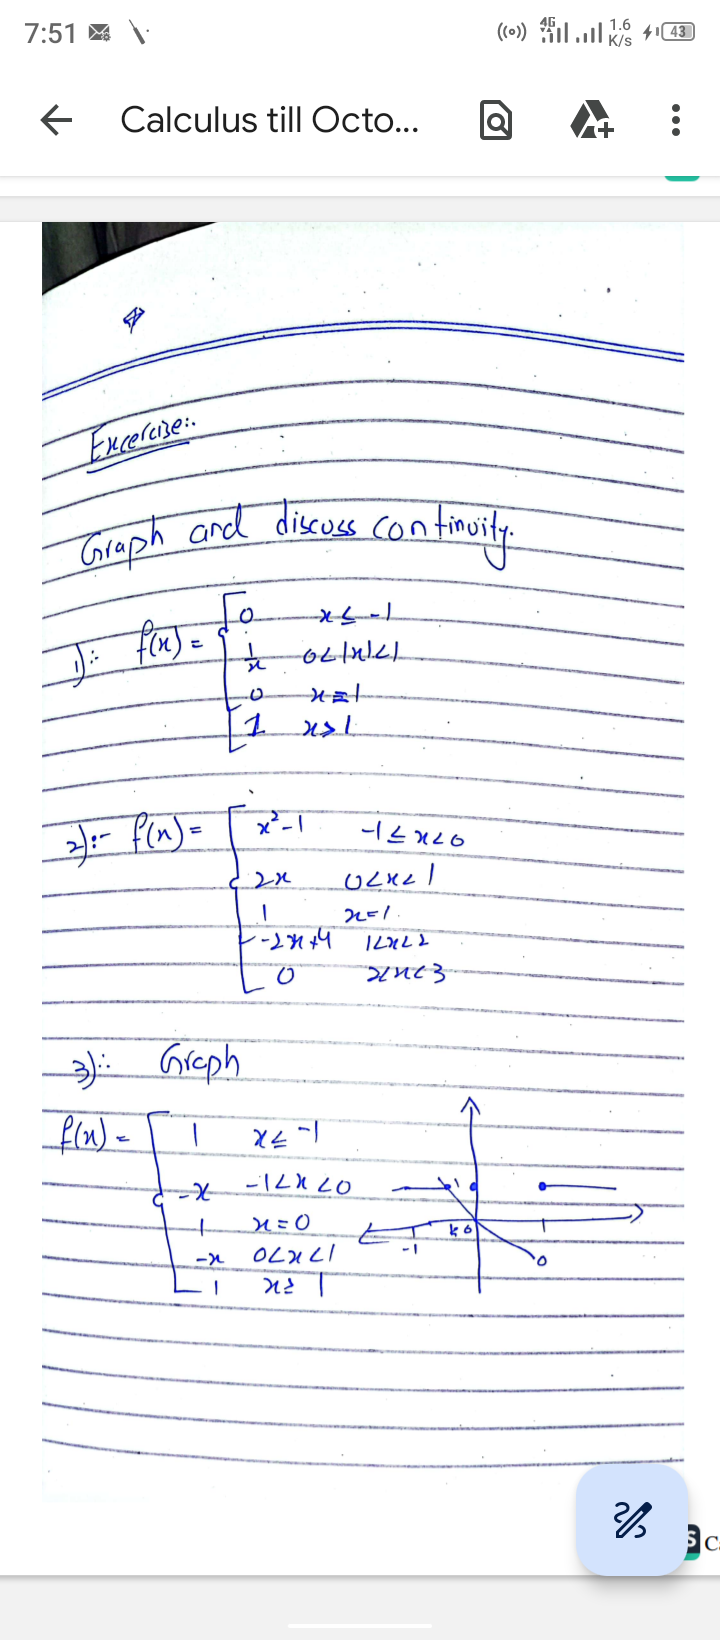 7:51
4G
1.6
K/s
43
Calculus till Octo...
Excercize:.
Graph and discuss continuity.
1):- f(x) = 0 x ≤ -1
1/x 0<|x|<1
0 x=1
1 x>1
2):- f(x) = x²-1 -1≤x<0
2x 0<x<1
1 x=1.
-2x+4 1<x<2
0 2<x<3
3):. Graph
f(x) = 1 x≤ -1
-x -1<x<0
1 x=0
-x 0<x<1
1 x≥ 1
1
-1